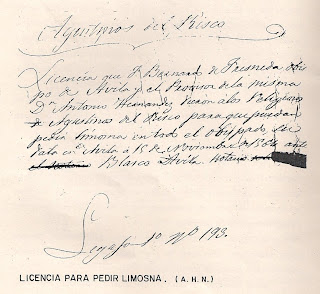 Agustinos del Risco
Licencia que Dn Bernardo de Fresneda obis-
po de Avila y el Provisor de la misma
Dn Antonio Hernandez dieron a los Religiosos
Agustinos del Risco para que puedan
pedir limosna en todo el obispado, su
data en Avila a 15 de Noviembre de ante
Blasco Avila Notario
Legajo 1o No 193.
LICENCIA PARA PEDIR LIMOSNA. (A. H. N.)